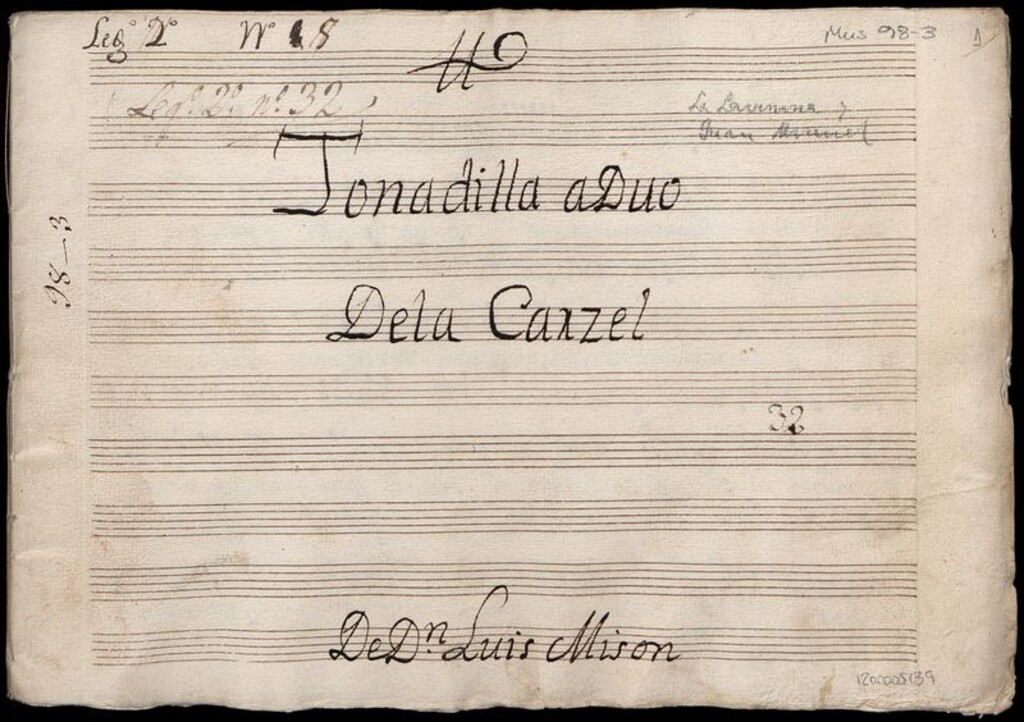 Leg.º 2º Nº 18
Mus 98-3
1
Leg.º 2º nº 32
La
Juan Manuel
Tonadilla aDuo
98-3
Dela Carzel
32
DeDn. Luis Mison
1200005139